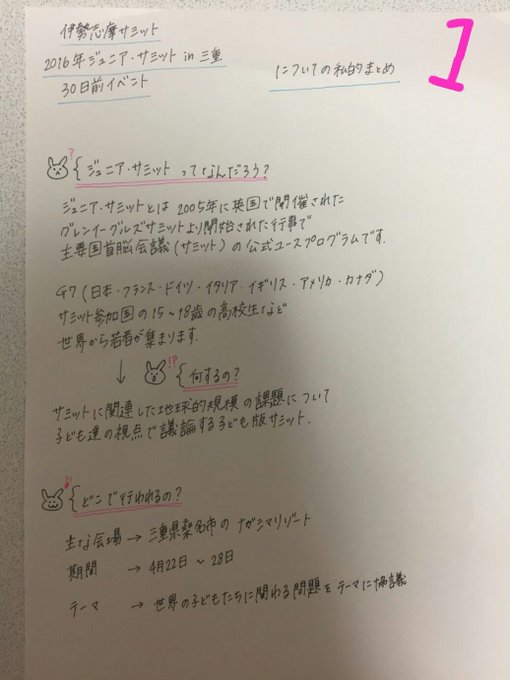 伊勢志摩サミット
2016年ジュニア・サミット in 三重
30日前イベント
についての私的まとめ
1
?
{ジュニア・サミット ってなんだろう?
ジュニア・サミットとは 2005年に英国で開催された
グレンイーグルズサミットより開始された行事で
主要国首脳会議(サミット)の公式ユースプログラムです.
G7(日本・フランス・ドイツ・イタリア・イギリス・アメリカ・カナダ)
サミット参加国の15~18歳の高校生など
世界から若者が集まります.
↓ !? {何するの?
サミットに関連した地球的規模の課題について
子ども達の視点で議論する子ども版サミット.
{どこで行われるの?
主な会場 → 三重県桑名市の ナガシマリゾート
期間 → 4月22日 ~ 28日
テーマ → 世界の子どもたちに関わる問題をテーマに協議